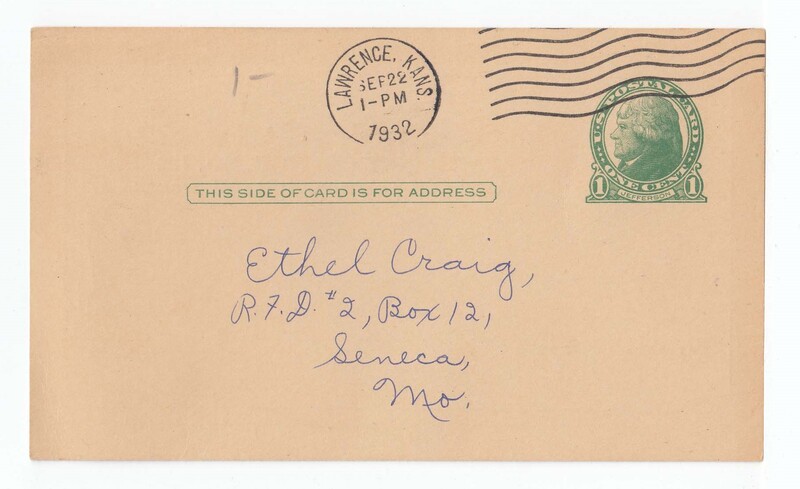 1-
LAWRENCE, KANS.
SEP 22
1-PM
1932
U.S. POSTAL CARD
1 ONE CENT 1
JEFFERSON
THIS SIDE OF CARD IS FOR ADDRESS
Ethel Craig,
R.F.D. #2, Box 12,
Seneca,
Mo.